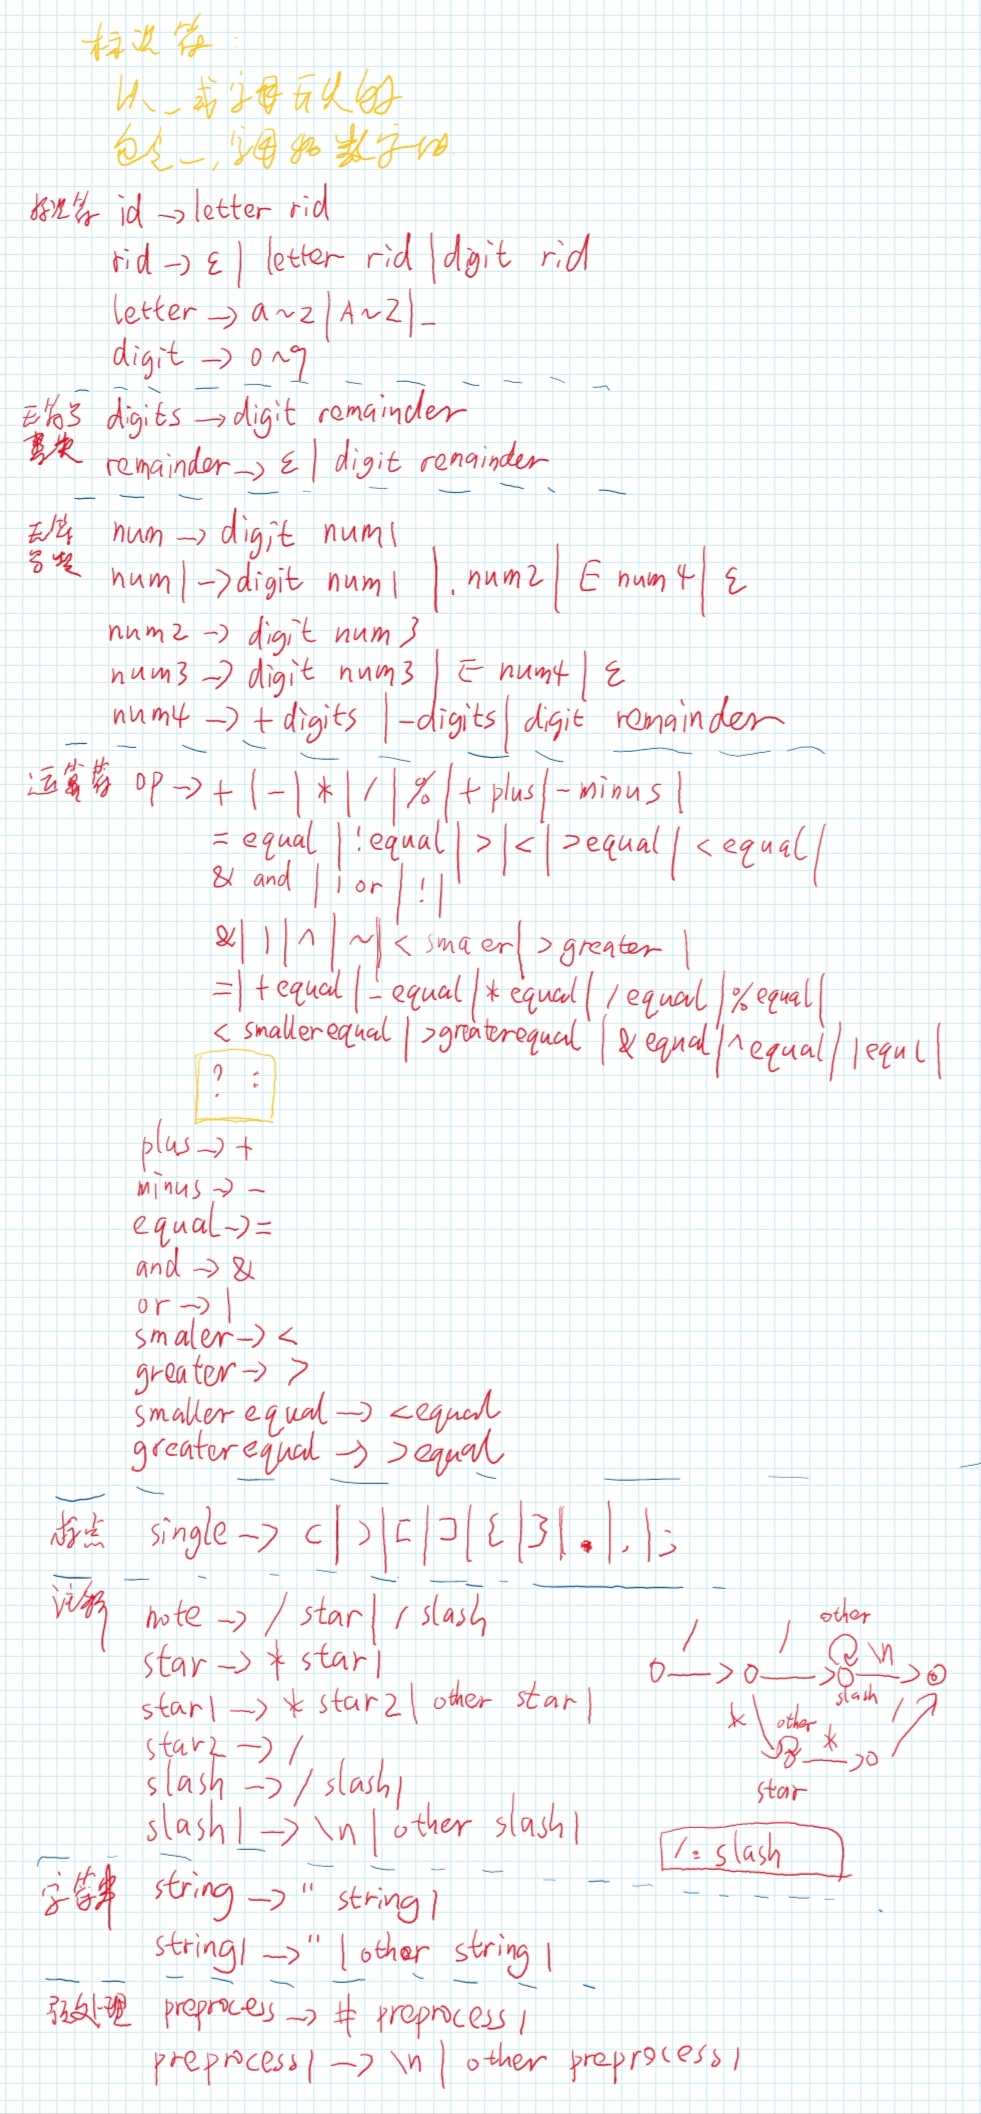 标识符:
以_或字母开头的
包含_,字母和数字的
标识符 id → letter rid
rid → ε | letter rid | digit rid
letter → a~z | A~Z | _
digit → 0~9
无符号 digits → digit remainder
整数 remainder → ε | digit remainder
无符 num → digit num1
号数 num1 → digit num1 | . num2 | E num4 | ε
num2 → digit num3
num3 → digit num3 | E num4 | ε
num4 → + digits | - digits | digit remainder
运算符 op → + | - | * | / | % | + plus | - minus |
= equal | ! equal | > | < | > equal | < equal |
& and | | or | ! |
& | | | ^ | ~ | < smaer | > greater |
= | + equal | - equal | * equal | / equal | % equal |
< smallerequal | > greaterequal | & equal | ^ equal | | equl |
? :
plus → +
minus → -
equal → =
and → &
or → |
smaler → <
greater → >
smaller equal → < equal
greater equal → > equal
标点 single → ( | ) | [ | ] | { | } | . | , | ;
注释 note → / star | / slash
star → * star1
star1 → * star2 | other star1
star2 → /
slash → / slash1
slash1 → \n | other slash1
/ / other \n
slash
* other * /
star
/: slash
字符串 string → " string1
string1 → " | other string1
预处理 preprocess → # preprocess1
preprocess1 → \n | other preprocess1